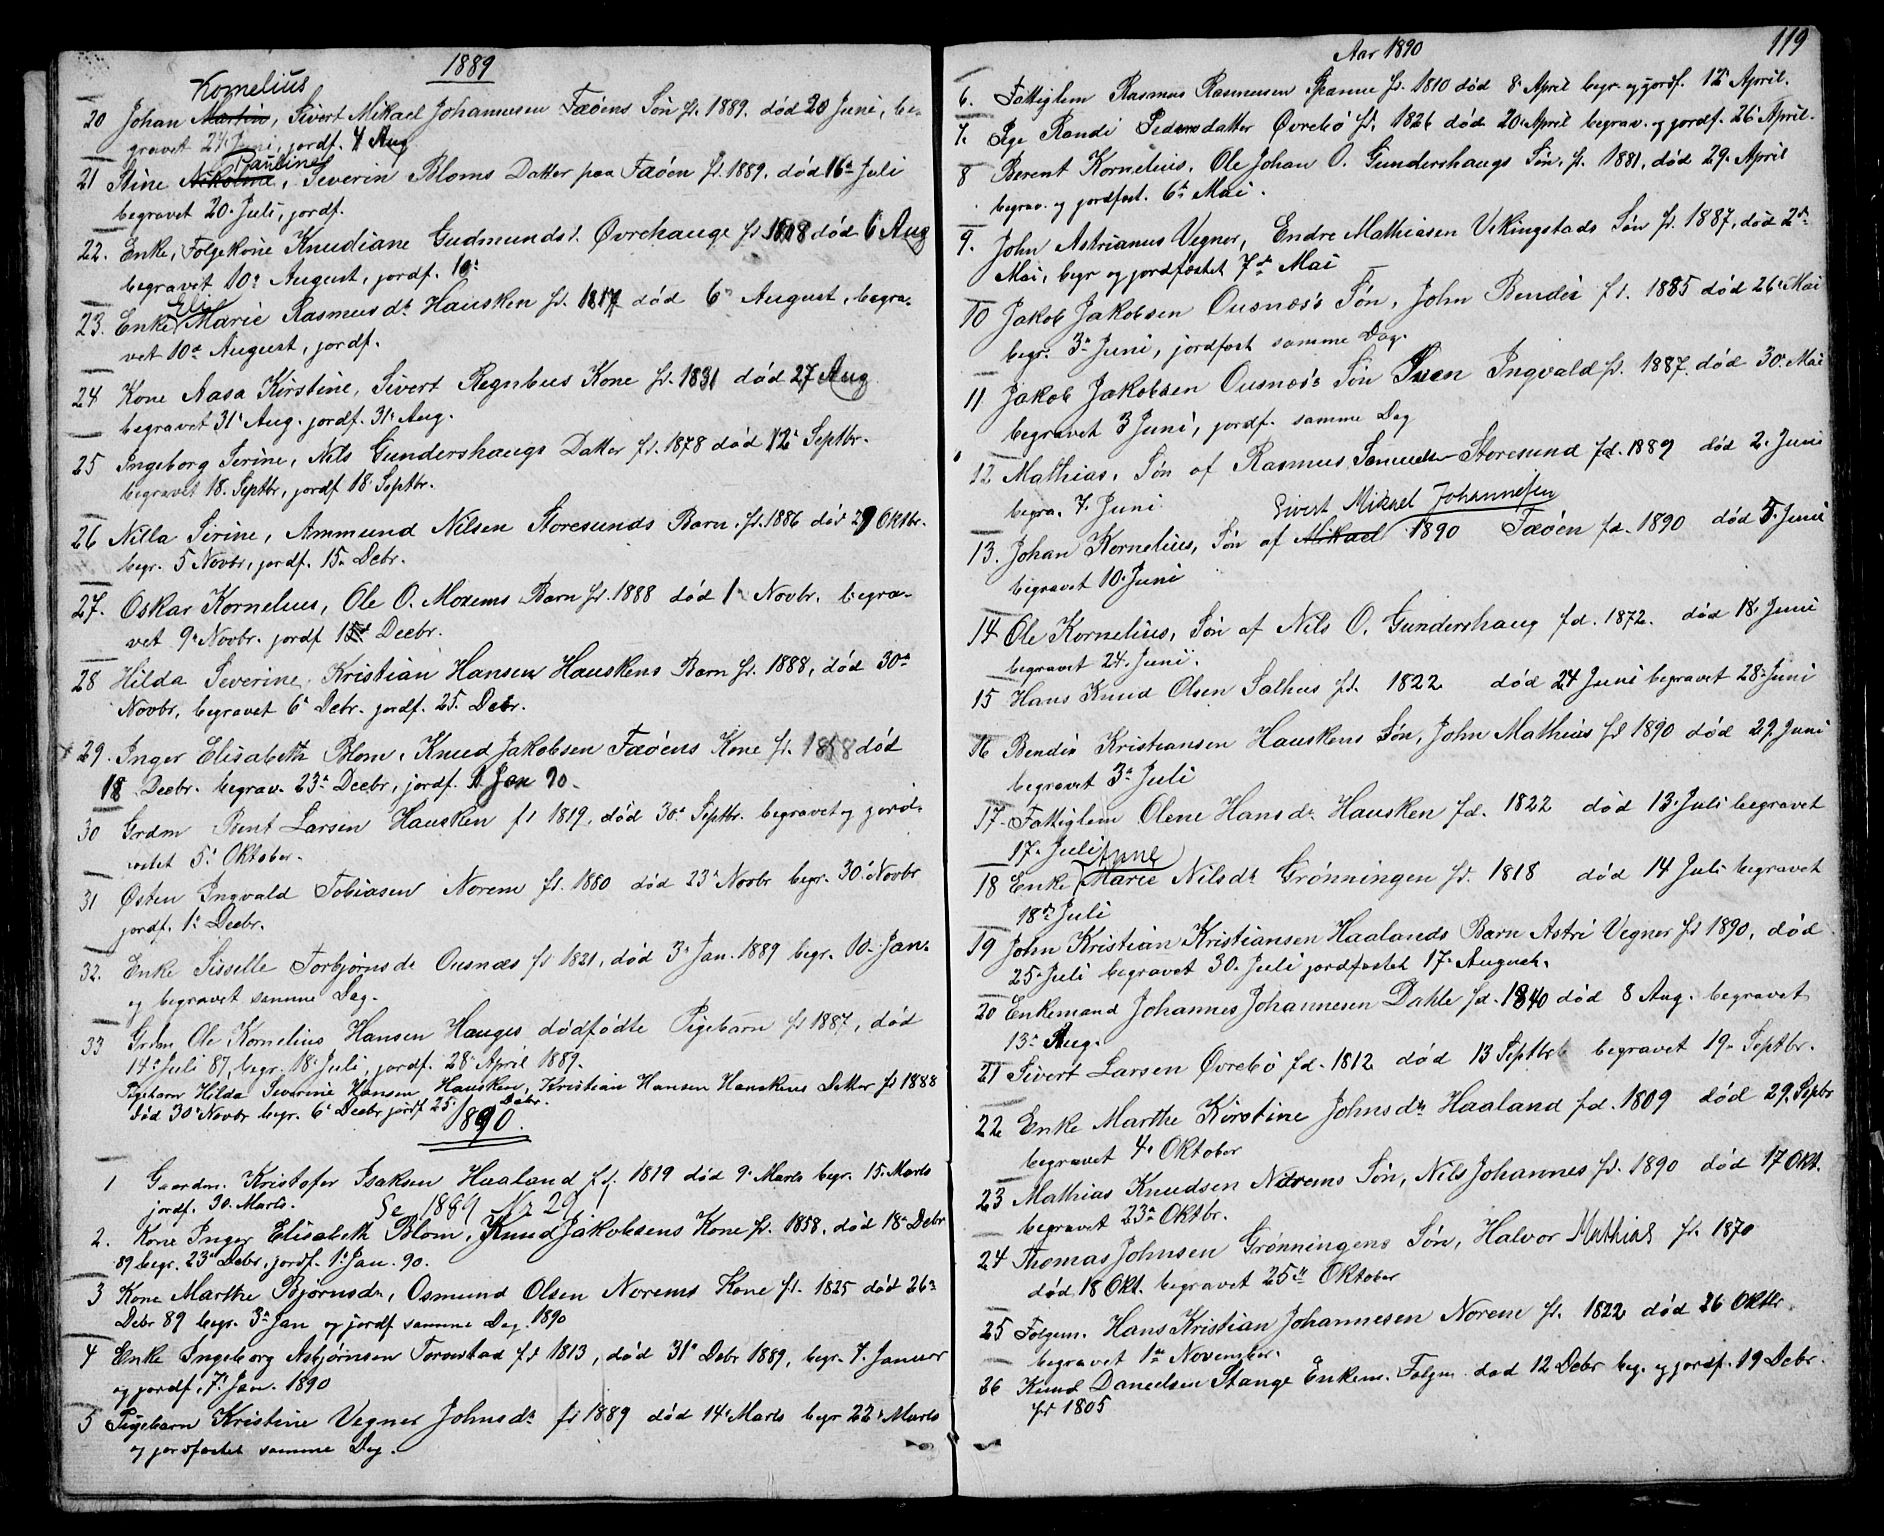 1889
Kornelius
20 Johan Martin, Sivert Mikael Johannesen Fæøens Søn fd. 1889. død 20 Juni, be-
gravet 24 Juni, jordf. 4 Aug
Pauline
21 Stine Nikoline, Severin Bloms Datter paa Fæøen fd. 1889. død 16de Juli
begravet 20. Juli, jordf.
22. Enke, Folgekone Knudiane Gudmundsd. Øvrehauge fd. 1808 død 6 Aug
begravet 10. August, jordf. 10.
Eli
23. Enke Marie Rasmusdr Hausken fd. 1817 død 6. August, begra-
vet 10de August, jordf.
24 Kone Aasa Kirstine, Sivert Regnbus Kone fd. 1831 død 27 Aug
begravet 31. Aug. jordf. 31. Aug.
25 Ingeborg Serine, Nils Gundershaugs Datter fd. 1878 død 12. Septbr.
begravet 18. Septbr, jordf 18. Septbr.
26 Nilla Serine, Ammund Nilsen Storesunds Barn. fd. 1886 død 29 Oktbr.
begr. 5 Novbr, jordf. 15. Debr.
27. Oskar Kornelius, Ole O. Moxems Barn fd. 1888 død 1. Novbr. begra-
vet 9. Novbr. jordf 15de Decbr.
28 Hilda Severine, Kristian Hansen Hauskens Barn fd. 1888, død 30te
Novbr, begravet 6. Debr. jordf. 25. Debr.
29. Inger Elisabeth Blom, Knud Jakobsen Fæøens Kone fd. 1858 død
18 Decbr. begrav. 23de Decbr, jordf. 1 Jan 90.
30 Grdm Bent Larsen Hausken fd 1819, død 30te Septbr. begravet og jord-
fæstet 5. Oktober.
31 Østen Ingvald Tobiasen Norem fd. 1880 død 23. Novbr begr. 30. Novbr
jordf. 1. Decbr.
32. Enke Sisselle Torbjørnsdr Ousnæs fd 1821, død 3. Jan. 1889 begr. 10. Jan.
og begravet samme Dag.
33 Grdm Ole Kornelius Hansen Hauges dødfødte Pigebarn fd 1887, død
14. Juli 87, begr. 18. Juli, jordf. 28. April 1889.
Pigebarn Hilda Severine Hansen Hausken, Kristian Hansen Hauskens Datter fd 1888
død 30. Novbr begr. 6. Decbr jordf 25. Debr.
1890.
1 Gaardm. Kristofer Isaksen Haaland fd. 1819 død 9. Marts begr. 15. Marts
jordf. 30. Marts. Se 1889 Nr 29
2. Kone Inger Elisabeth Blom, Knud Jakobsens Kone fd. 1858, død 18. Debr
89 begr. 23de Debr, jordf. 1. Jan. 90.
3 Kone Marthe Bjørnsdr, Osmund Olsen Norems Kone fd. 1825 død 26de
Debr 89 begr. 3de Jan og jordf samme Dag. 1890
4 Enke Ingeborg Asbjørnsen Torvestad fd 1813, død 31. Debr 1889, begr. 7. Januar
og jordf. 7. Jan. 1890
5 Pigebarn Kristine Vegner Johnsdr fd 1889 død 14. Marts begr 22. Marts
og jordfæstet samme Dag.
Aar 1890
119
6. Fattiglem Rasmus Rasmusen Spanne fd. 1810 død 8. April begr. og jordf. 12. April.
7. Pige Randi Pedersdatter Øvrebø fd. 1826 død 20. April begrav. og jordf. 26. April.
8 Berent Kornelius, Ole Johan O. Gundershaugs Søn, fd. 1881, død 29. April
begrav. og jordfæst. 6te Mai.
9. John Astrianus Vegner, Endre Mathiasen Vikingstads Søn fd. 1887, død 2den
Mai, begr og jordfæstet 7de Mai
10 Jakob Jakobsen Ousnæs's Søn, John Bendix fd. 1885 død 26. Mai
begr. 3de Juni, jordfæst samme Dag.
11 Jakob Jakobsen Ousnæs's Søn Sven Ingvald fd. 1887. død 30. Mai
begravet 3 Juni, jordf. samme Dag
12 Mathias, Søn af Rasmus Samuels. Storesund fd. 1889 død 2. Juni
begra. 7. Juni
Sivert Mikael Johannesen
13. Johan Kornelius, Søn af Mikael 1890 Fæøen fd. 1890 død 5. Juni
begravet 10. Juni
14 Ole Kornelius, Søn af Nils O. Gundershaug fd. 1872. død 18. Juni
begravet 24. Juni.
15 Hans Knud Olsen Salhus fd. 1822 død 24 Juni begravet 28. Juni
16 Bendix Kristiansen Hauskens Søn, John Mathias fd 1890 død 29. Juni
begravet 3de Juli
17. Fattiglem Olene Hansdr Hausken fd. 1822 død 13. Juli begravet
17. Juli
Anne
18 Enke Marie Nilsdr Grønningen fd. 1818 død 14 Juli begravet
18de Juli
19 John Kristian Kristiansen Haalands Barn Astri Vegner fd 1890, død
25. Juli begravet 30. Juli jordfæstet 17. August.
20 Enkemand Johannes Johannesen Dahle fd. 1840 død 8 Aug. begravet
13de Aug.
21 Sivert Larsen Øvrebø fd. 1812 død 13 Septbr begravet 19. Septbr.
22 Enke Marthe Kirstine Johnsdr Haaland fd. 1809 død 29. Sepbr
begravet 4. Oktober
23 Mathias Knudsen Norems Søn, Nils Johannes fd. 1890 død 17 Okt.
begravet 23de Oktbr.
24 Thomas Johnsen Grønningens Søn, Halvor Mathias fd. 1870
død 18 Okt. begravet 25de Oktober
25 Folgem. Hans Kristian Johannesen Norem fd. 1822 død 26 Oktbr
begravet 1ste November.
26 Knud Danielsen Stange Enkem. Folgm. død 12 Debr beg. og jordf. 19 Debr.
fd 1805